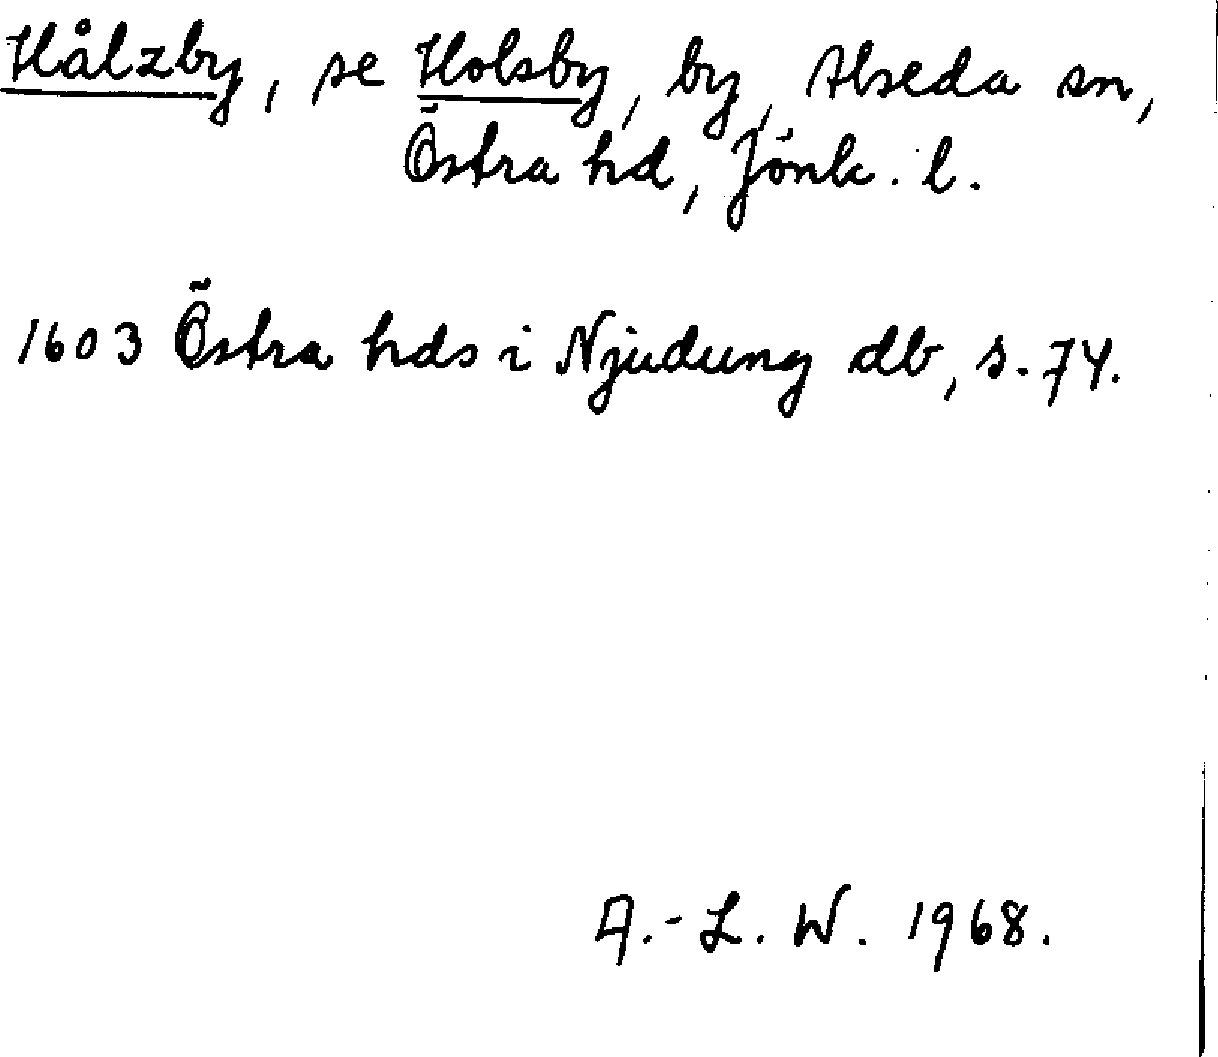 Hålzby, se Holsby, by, Alseda sn,
Östra hd, Jönk. l.
1603 Östra hds i Njudung db, s. 74.
A.-L. W. 1968.